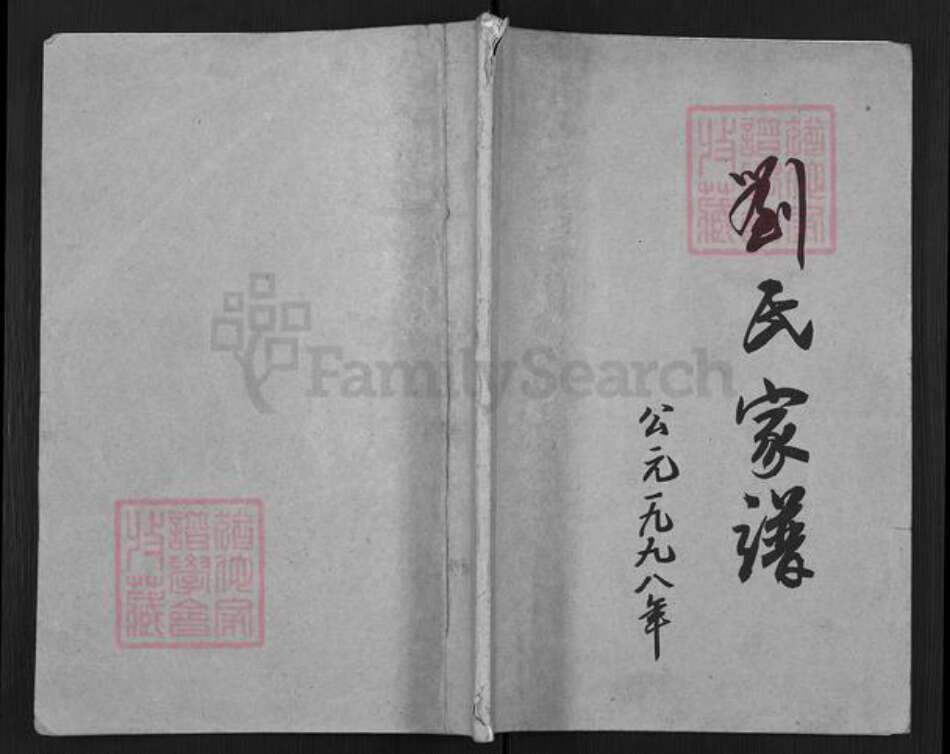 劉氏家譜
公元一九九八年
猶他家譜學會收藏
猶他家譜學會收藏
FamilySearch